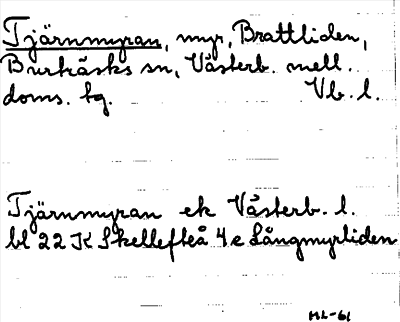 Tjärnmyran, myr, Brattliden,
Burträsks sn, Västerb. mell.
doms. tg. Vb. l.
Tjärnmyran ek Västerb. l.
bl 22 K Skellefteå 4e Långmyrliden
ML-61